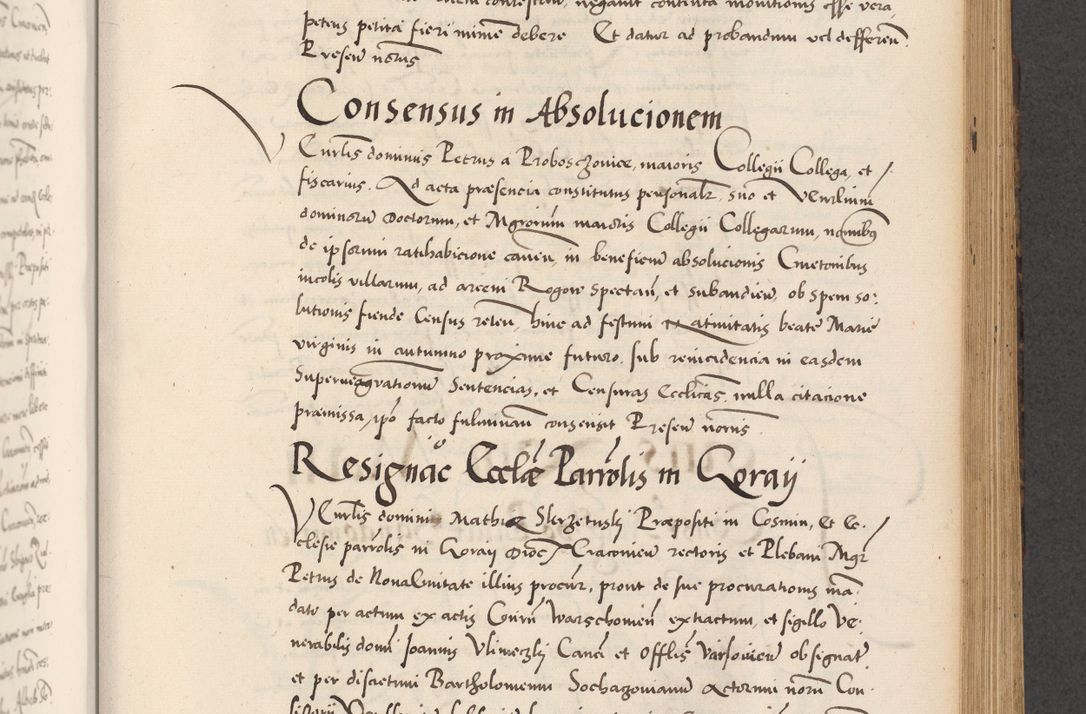 petens petita fieri minime debere Et datur ad probandum vel differen.
Presen notis
Consensus in Absolucionem
Venrlis dominus Petrus a Proboszovice, maioris Collegii Collega, et
fiscarius. Ad acta præsencia constitutus personalr, suo et Venrlium
dominoru Doctorum, et Mgrorum maioris Collegii Collegarum, nominibus
de ipsorum ratihabicione caven, in beneficiu absolucionis Cmetonibus
incolis villarum, ad arcem Rogow spectan, et subandien, ob spem so:
lutionis fiende Census reten, hinc ad festum Nativitatis beate Marie
virginis in autumno proxime futuro, sub reincidencia in easdem
Superaggravationu Sentencias, et Censuras Ecclicas, nulla citacione
præmissa, ipo facto fulminan consensit Presen notis.
Resignac Ecclæ Parrolis in Goraij
Venrlis domini Mathiæ Slerzetuskj Præpositi in Cosmin, et Ec:
clesie parrolis in Goraij Dioc Cracovien rectoris et Plebani Mgr
Petrus de Nova Civitate illius procur, prout de sue procurationis man:
dato per actum ex actis Consin Warschovien extractum, et sigillo Ve:
nerabilis domi Joannis Vlinieczkj Canci et Offlis Varsovien obsignat,
et per discretum Bartholomeum Sochazovianu Actorum norum Con: